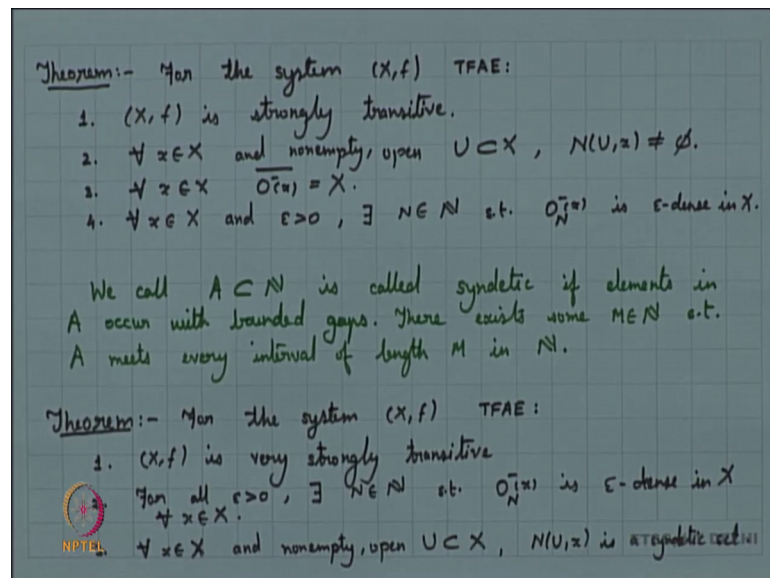 Theorem:- For the system (X,f) TFAE:
1. (X,f) is strongly transitive.
2. ∀ x∈X and nonempty, open U⊂X, N(U,x) ≠ ∅.
3. ∀ x∈X \overline{O^-(x)} = X.
4. ∀ x∈X and ε>0, ∃ N∈ℕ s.t. O_N^-(x) is ε-dense in X.
We call A⊂ℕ is called syndetic if elements in
A occur with bounded gaps. There exists some M∈ℕ s.t.
A meets every interval of length M in ℕ.
Theorem:- For the system (X,f) TFAE:
1. (X,f) is very strongly transitive
For all ε>0, ∃ N∈ℕ s.t. O_N^-(x) is ε-dense in X
∀ x∈X.
∀ x∈X and nonempty, open U⊂X, N(U,x) is a syndetic set
NPTEL